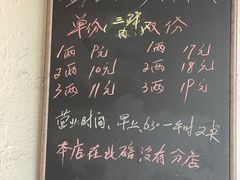 单份 三鲜肉 双份
1两 9元 1两 17元
2两 10元 2两 18元
3两 11元 3两 19元
营业时间、早上630一午时
本店在此路没有分店